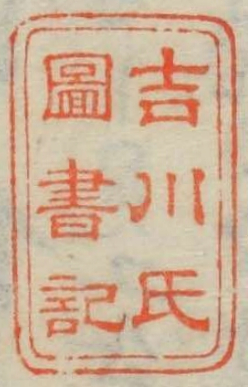 吉川氏
圖書記